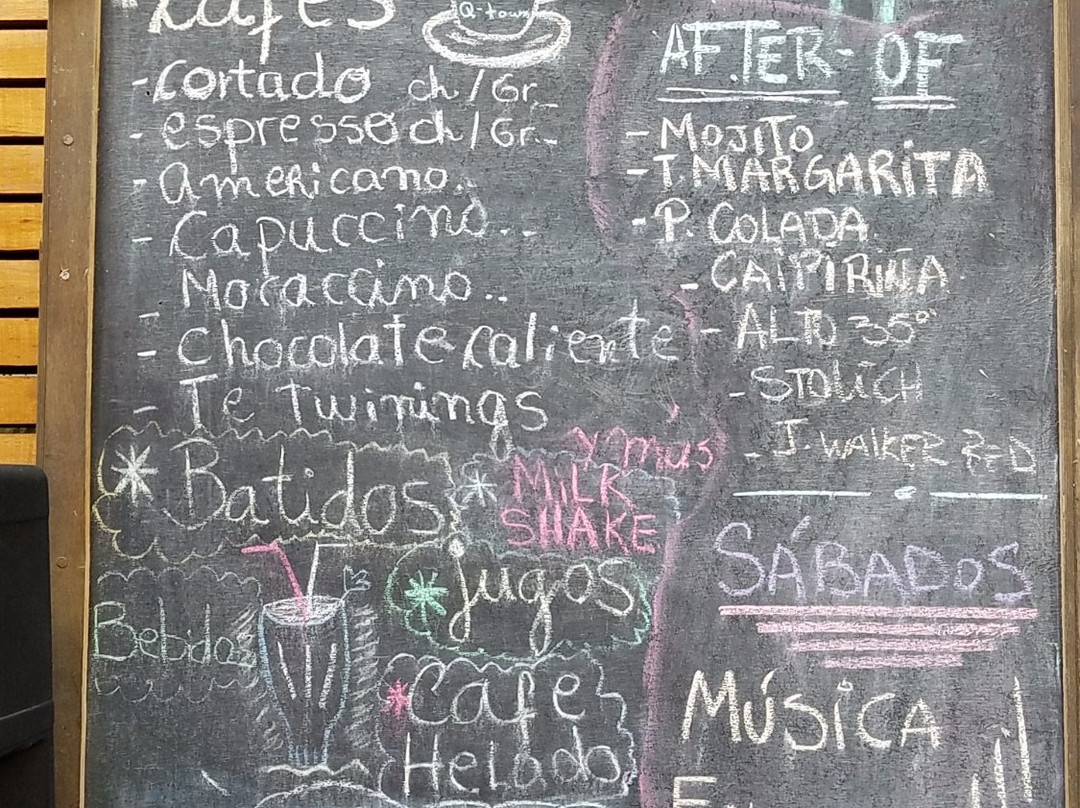 Cafés
Q-town
- Cortado ch/Gr.
- espresso ch/Gr.
- Americano.
- Capuccino..
- Mocaccino..
- Chocolate caliente
- Te Twinings
* Batidos
y mus
* MILK
SHAKE
* jugos
Bebida
* Cafe
Helado
AFTER-OF
- MOJITO
- T. MARGARITA
- P. COLADA
- CAIPIRIÑA
- ALTO 35°
- STOLICH
- J. WALKER RED
SÁBADOS
MÚSICA